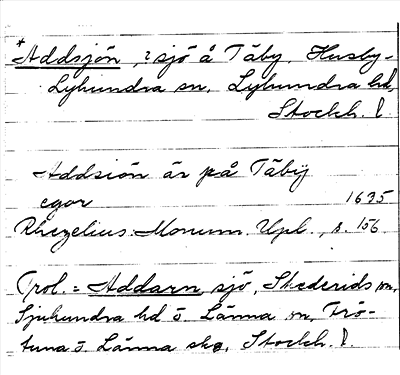 *Addsjön, ? sjö å Täby, Husby-
Lyhundra sn, Lyhundra hd,
Stockh. l.
Addsiön är på Täbij
egor 1635
Rhezelius: Monum. Upl., s. 156.
Trol. = Addarn, sjö, Skederids sn,
Sjuhundra hd o. Länna sn, Frö-
tuna o. Länna skg, Stockh. l.